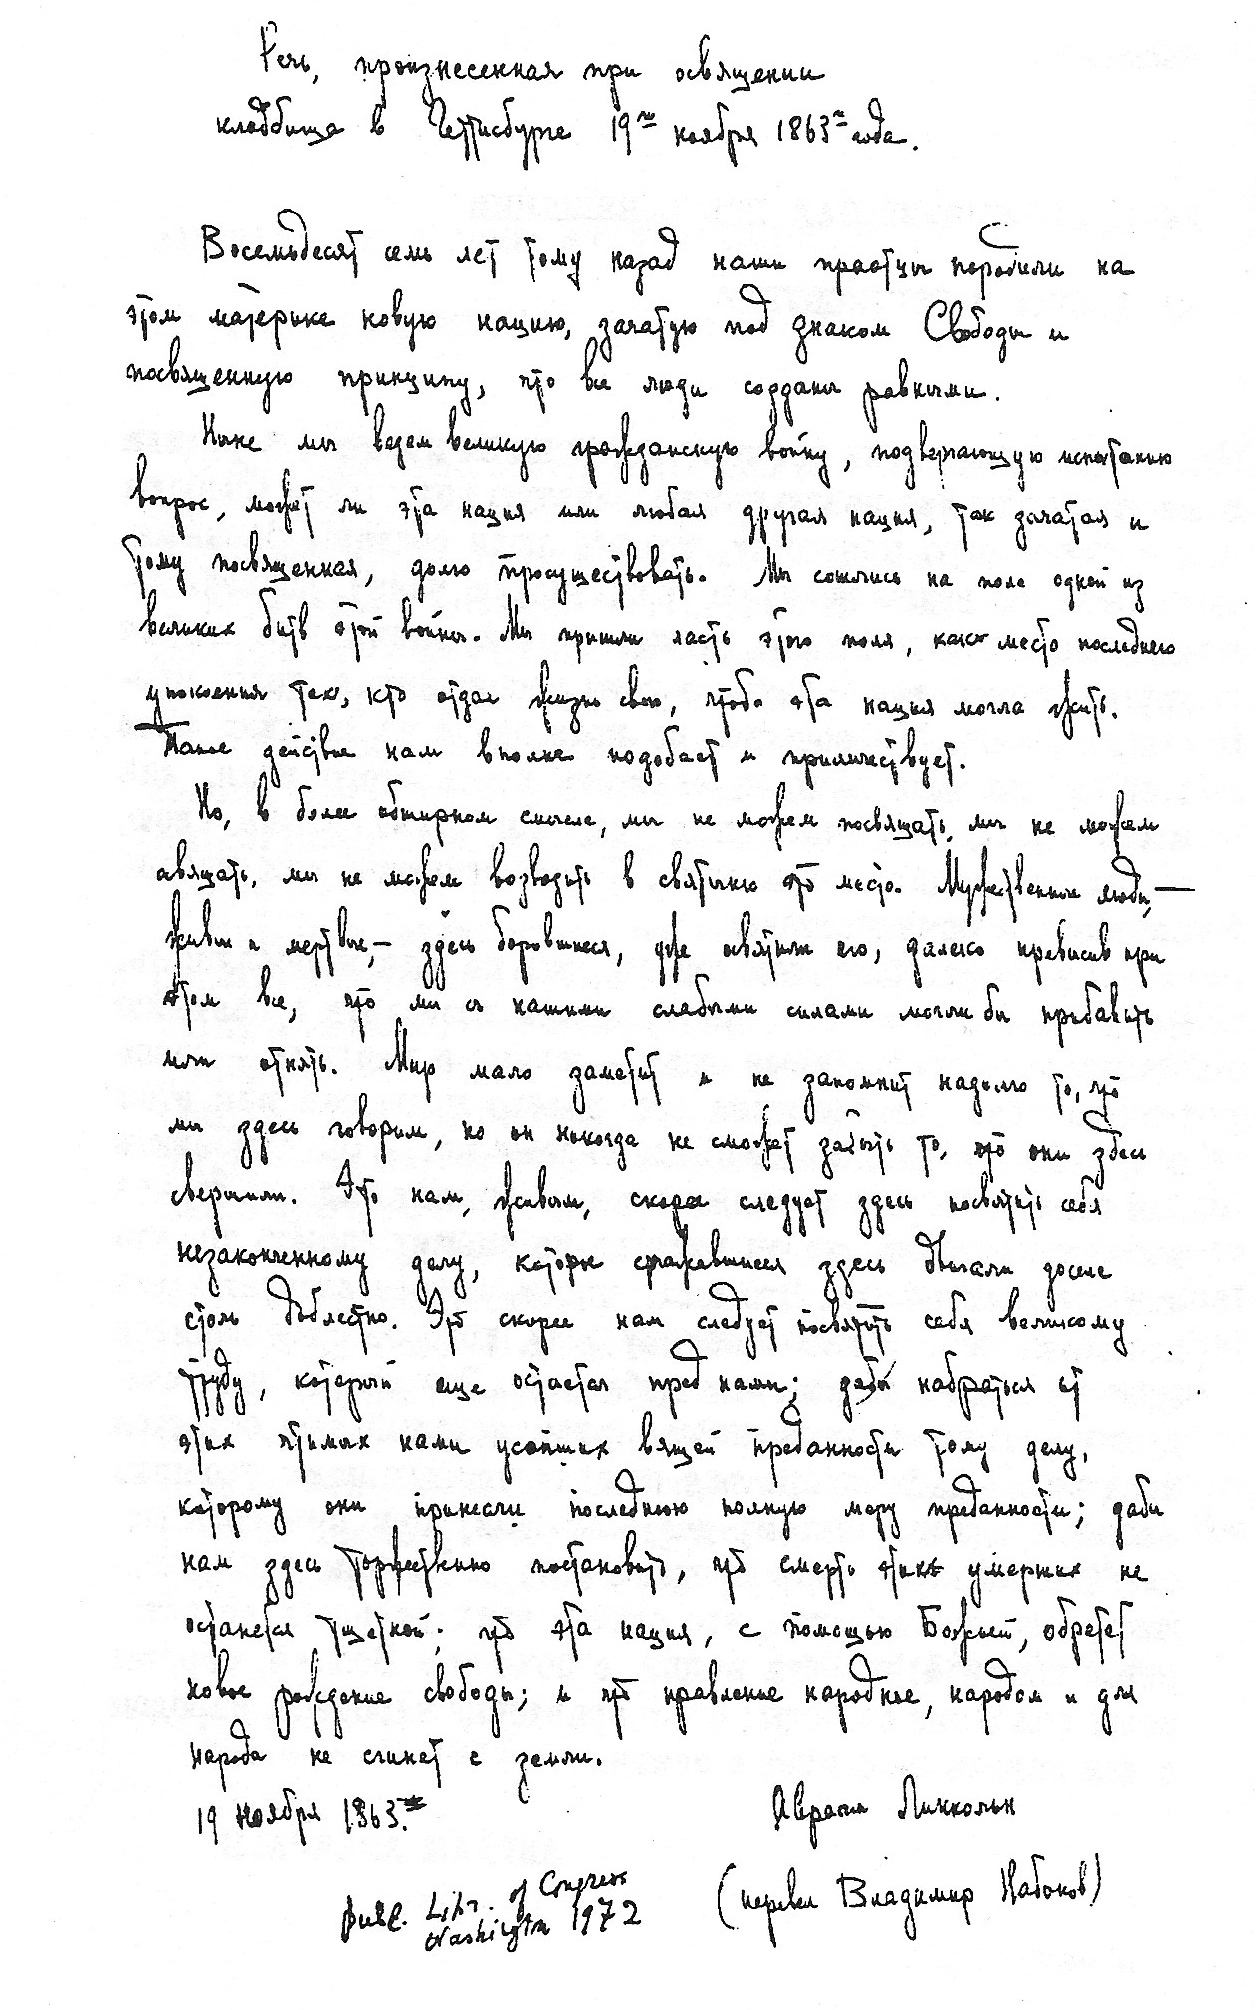 Речь, произнесенная при освящении
кладбища в Геттисбурге 19го ноября 1863го года.
Восемьдесят семь лет тому назад наши праотцы породили на
этом материке новую нацию, зачатую под знаком Свободы и
посвященную принципу, что все люди созданы равными.
Ныне мы ведем великую гражданскую войну, подвергающую испытанию
вопрос, может ли эта нация или любая другая нация, так зачатая и
тому посвященная, долго просуществовать. Мы сошлись на поле одной из
великих битв этой войны. Мы пришли часть этого поля, как место последнего
упокоения тех, кто отдал жизнь свою, чтобы эта нация могла жить.
Такое действие нам вполне подобает и приличествует.
Но, в более обширном смысле, мы не можем посвящать, мы не можем
освящать, мы не можем возводить в святыню это место. Мужественные люди,—
живые и мертвые,— здесь боровшиеся, уже освятили его, далеко превысив при
этом все, что мы с нашими слабыми силами могли бы прибавить
или отнять. Мир мало заметит и не запомнит надолго то, что
мы здесь говорим, но он никогда не сможет забыть то, что они здесь
свершили. Это нам, живым, скорее следует здесь посвятить себя
незаконченному делу, которое сражавшиеся здесь двигали доселе
столь доблестно. Это скорее нам следует посвятить себя великому
труду, который еще остается пред нами; дабы набраться от
этих чтимых нами усопших вящей преданности тому делу,
которому они принесли последнюю полную меру преданности; дабы
нам здесь торжественно постановить, что смерть этих умерших не
останется тщетной; что эта нация, с помощью Божьей, обретет
новое рождение свободы; и что правление народное, народом и для
народа не сгинет с земли.
19 ноября 1863.
Авраам Линкольн
(перевел Владимир Набоков)
Publ. Libr. of Congress
Washington 1972